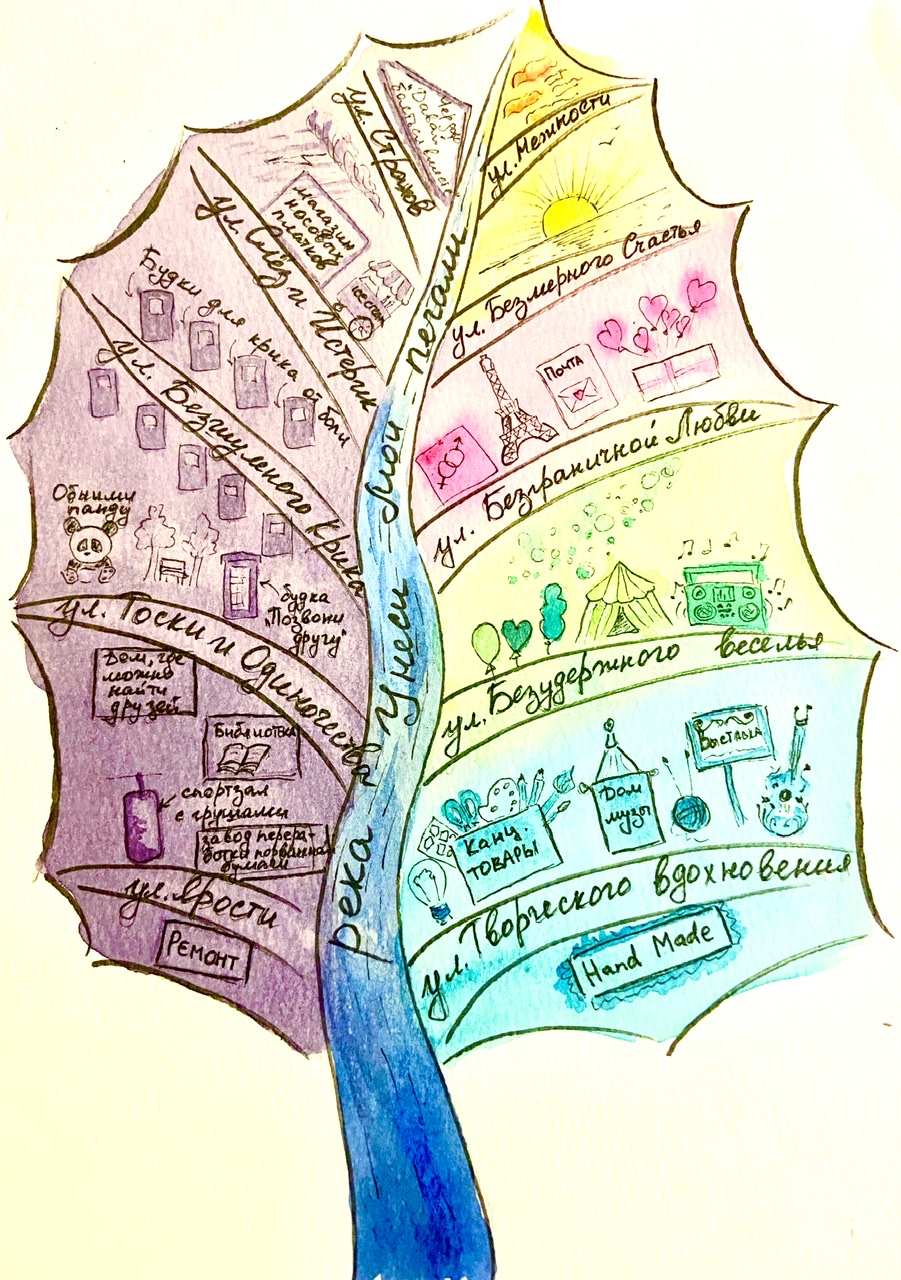 ул. Страхов
"Давай
ул. Слёз и Истерик
магазин
носовых
платков
Будки для крика от боли
ул. Безумного Крика
Обними
панду
будка
"Позвони
другу"
ул. Тоски и Одиночества
Дом, где
можно
найти
друзей
Библиотека
спортзал
с грушами
завод перера-
ботки порванной
бумаги
ул. Ярости
Ремонт
река Унеси Мои печали
ул. Нежности
ул. Безмерного Счастья
Почта
ул. Безграничной Любви
ул. Безудержного веселья
Выставка
Дом
музы
Канц.
товары
ул. Творческого вдохновения
Hand Made